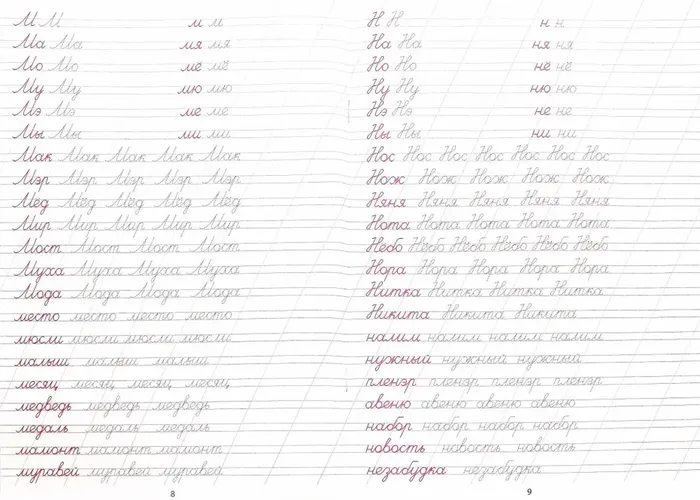 М М м м
Ма Ма мя мя
Мо Мо мё мё
Му Му мю мю
Мэ Мэ ме ме
Мы Мы ми ми
Мак Мак Мак Мак Мак
Мэр Мэр Мэр Мэр Мэр
Мёд Мёд Мёд Мёд Мёд
Мир Мир Мир Мир Мир
Мост Мост Мост Мост
Муха Муха Муха Муха
Мода Мода Мода Мода
место место место место
мюсли мюсли мюсли мюсли
малыш малыш малыш
месяц месяц месяц месяц
медведь медведь медведь
медаль медаль медаль
мамонт мамонт мамонт
муравей муравей муравей
8
Н Н н н
На На ня ня
Но Но нё нё
Ну Ну ню ню
Нэ Нэ не не
Ны Ны ни ни
Нос Нос Нос Нос Нос Нос Нос
Нож Нож Нож Нож Нож
Няня Няня Няня Няня Няня
Нота Нота Нота Нота Нота
Небо Небо Небо Небо Небо
Нора Нора Нора Нора Нора
Нитка Нитка Нитка Нитка
Никита Никита Никита
налим налим налим налим
нужный нужный нужный
пленэр пленэр пленэр пленэр
авеню авеню авеню авеню
набор набор набор набор
новость новость новость
незабудка незабудка
9